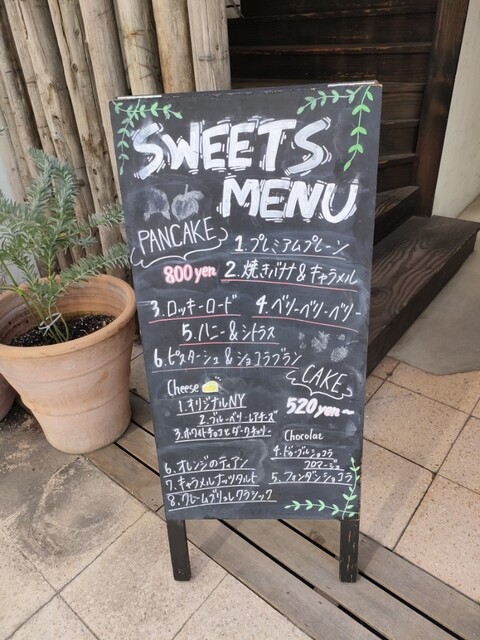 SWEETS
MENU
PANCAKE
800yen
1.プレミアムプレーン
2.焼きバナナ&キャラメル
3.ロッキーロード 4.ベリーベリーベリー
5.ハニー&シトラス
6.ピスターシュ&ショコラブラン
Cheese
CAKE
520yen~
1.オリジナルNY
2.ブルーベリーレアチーズ
3.ホワイトチョコとダークチェリー
Chocolat
4.ドゥーブルショコラ
フロマージュ
5.フォンダンショコラ
6.オレンジのティアン
7.キャラメルナッツタルト
8.クレームブリュレクラシック